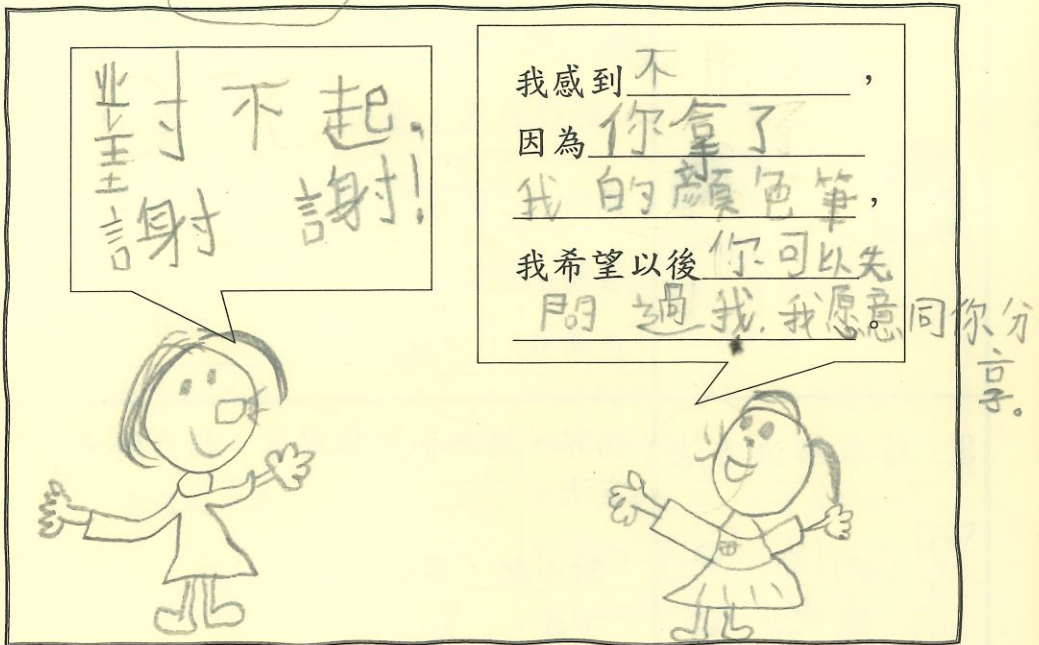 對不起.
謝謝!
我感到不，
因為你拿了
我的顏色筆，
我希望以後你可以先
問過我.我愿意同你分
享。